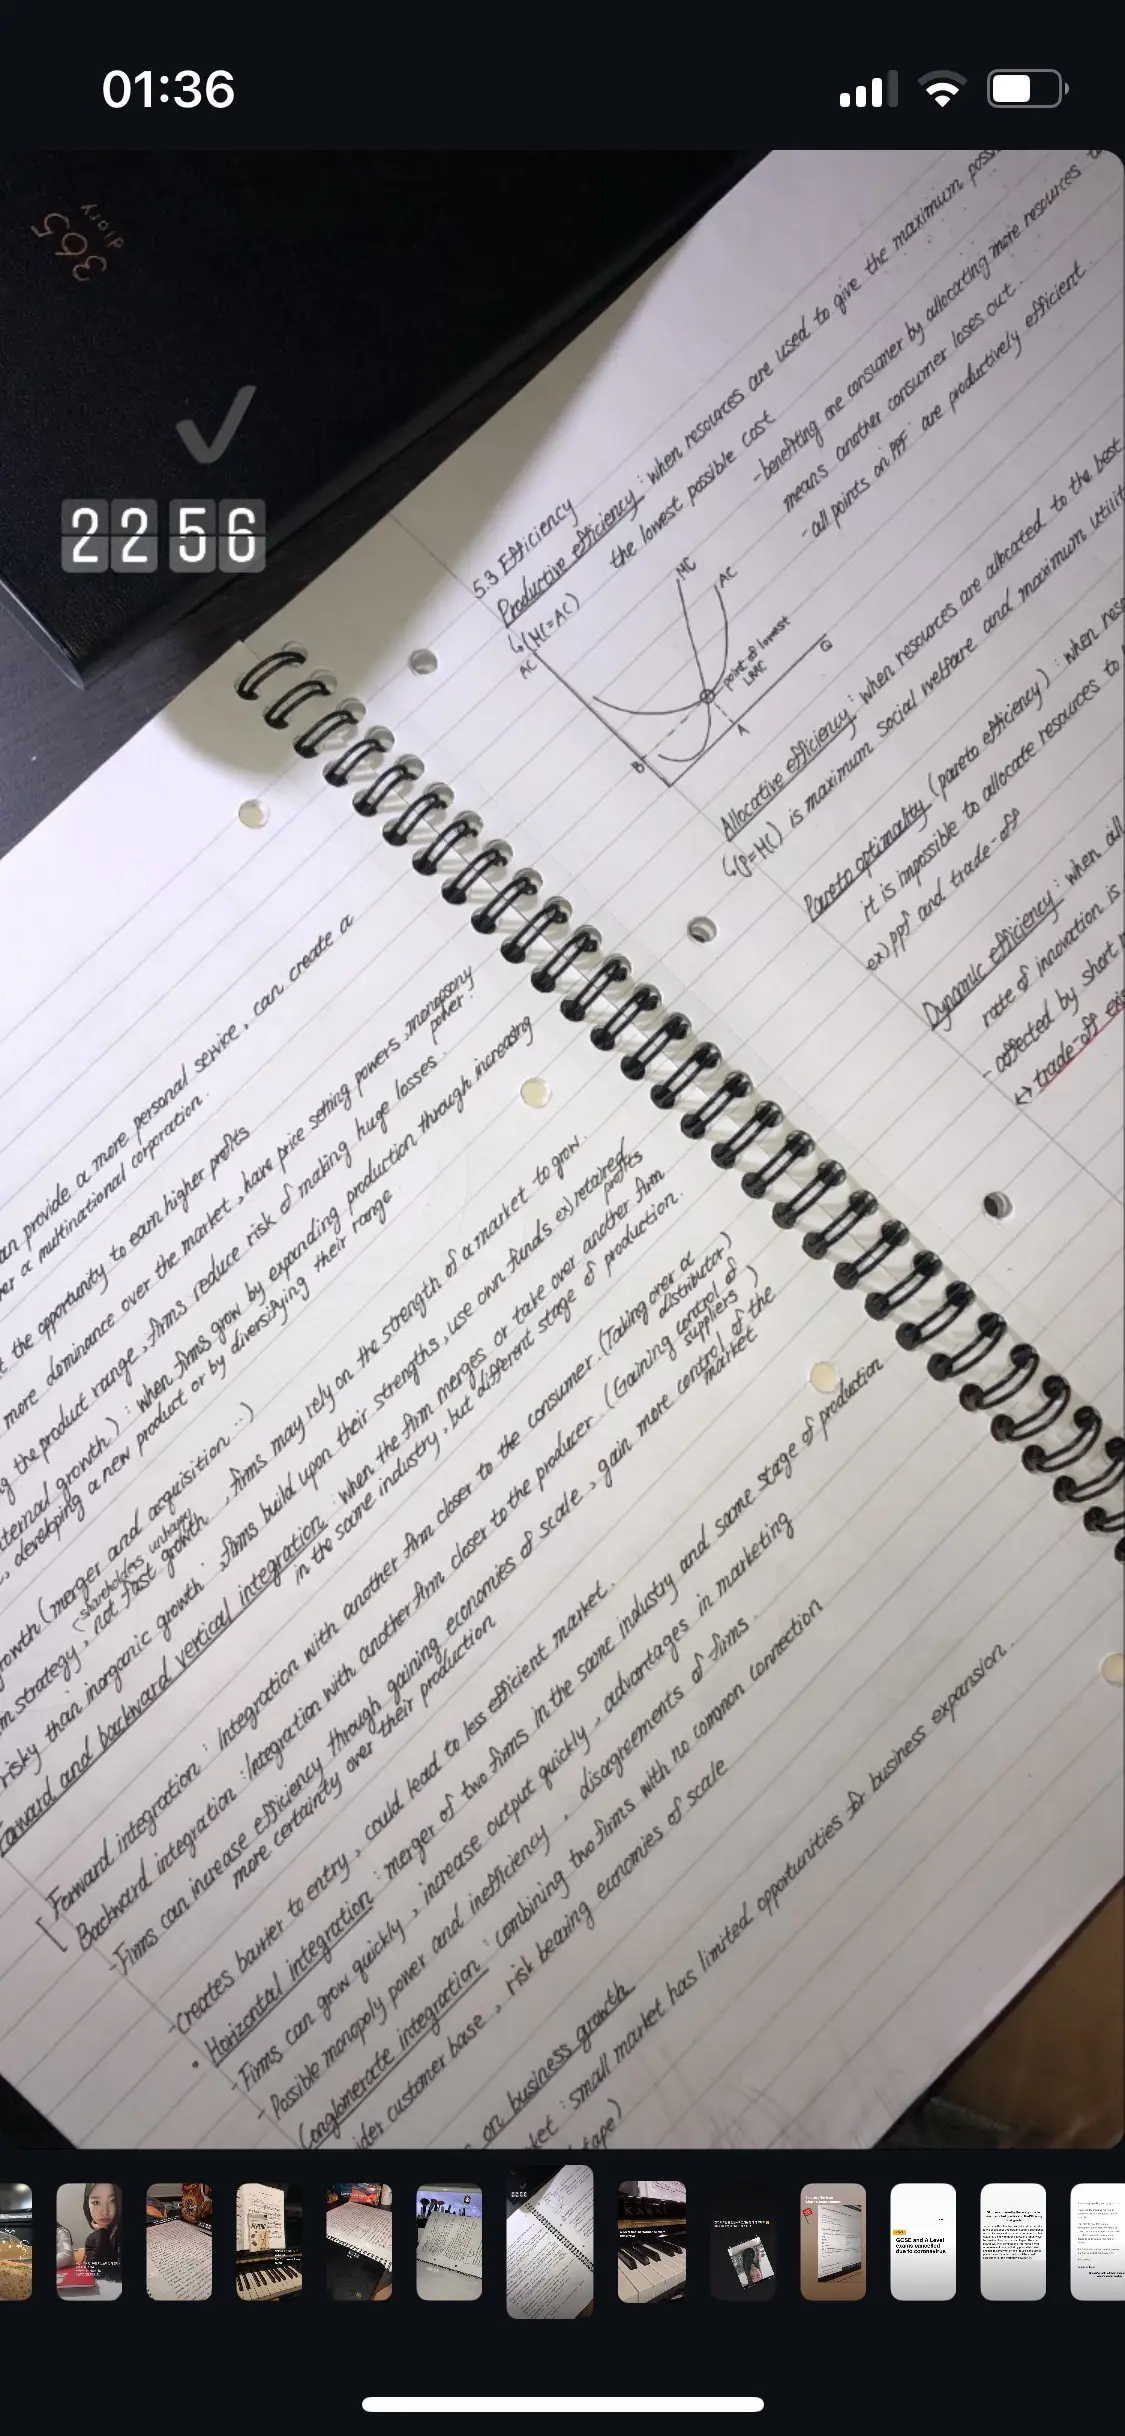 01:36
365
diary
22 56
an provide a more personal service, can create a
er a multinational corporation.
t the opportunity to earn higher profits
more dominance over the market, have price setting powers, monopsony
power.
g the product range, firms reduce risk of making huge losses.
ternal growth): when firms grow by expanding production through increasing
, developing a new product or by diversifying their range
growth (merger and acquisition...)
(shareholders unhappy
m strategy, not fast growth, firms may rely on the strength of a market to grow.
risky than inorganic growth, firms build upon their strengths, use own funds ex) retained
profits
Forward and backward vertical integration: when the firm merges or take over another firm
in the same industry, but different stage of production.
[Forward integration: Integration with another firm closer to the consumer. (Taking over a
distributor)
Backward integration: Integration with another firm closer to the producer. (Gaining control of
suppliers)
- Firms can increase efficiency through gaining economies of scale, gain more control of the
market
more certainty over their production
- Creates barrier to entry, could lead to less efficient market.
• Horizontal integration: merger of two firms in the same industry and same stage of production
- Firms can grow quickly, increase output quickly, advantages in marketing
- Possible monopoly power and inefficiency, disagreements of firms.
Conglomerate integration: combining two firms with no common connection
ider customer base, risk bearing economies of scale
on business growth
ket: small market has limited opportunities for business expansion.
tape)
5.3 Efficiency
Productive efficiency: when resources are used to give the maximum poss
↳(MC=AC) the lowest possible cost
- benefiting one consumer by allocating more resources
means another consumer loses out.
- all points on PPF are productively efficient
AC
MC
AC
point of lowest
LRAC
Q
A
B
Allocative efficiency: when resources are allocated to the best
↳(P=MC) is maximum social welfare and maximum utilit
Pareto optimality (pareto efficiency): when reso
it is impossible to allocate resources to
ex) ppf and trade-off
Dynamic efficiency: when all
rate of innovation is
- affected by short r
↔ trade-off exi
GCSE and A Level
exams cancelled
due to coronavirus